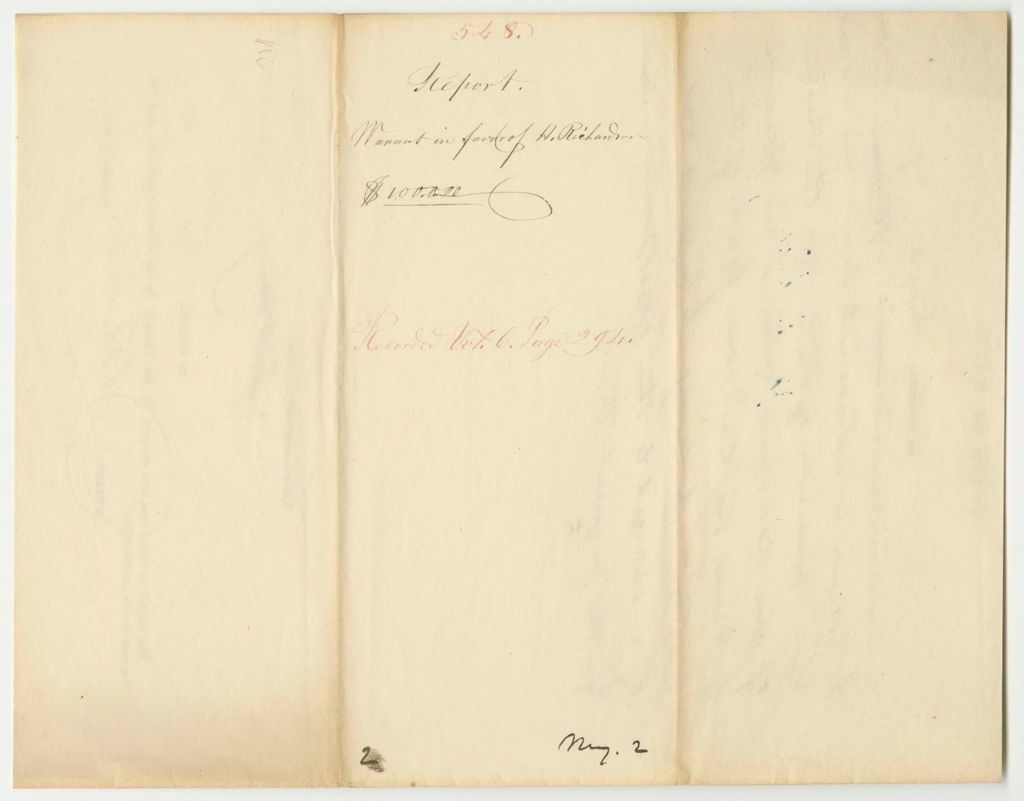 548.
Report.
Warrant in favor of H. Richardson
$100.00
Recorded Vol. 6. Page 294.
2
2